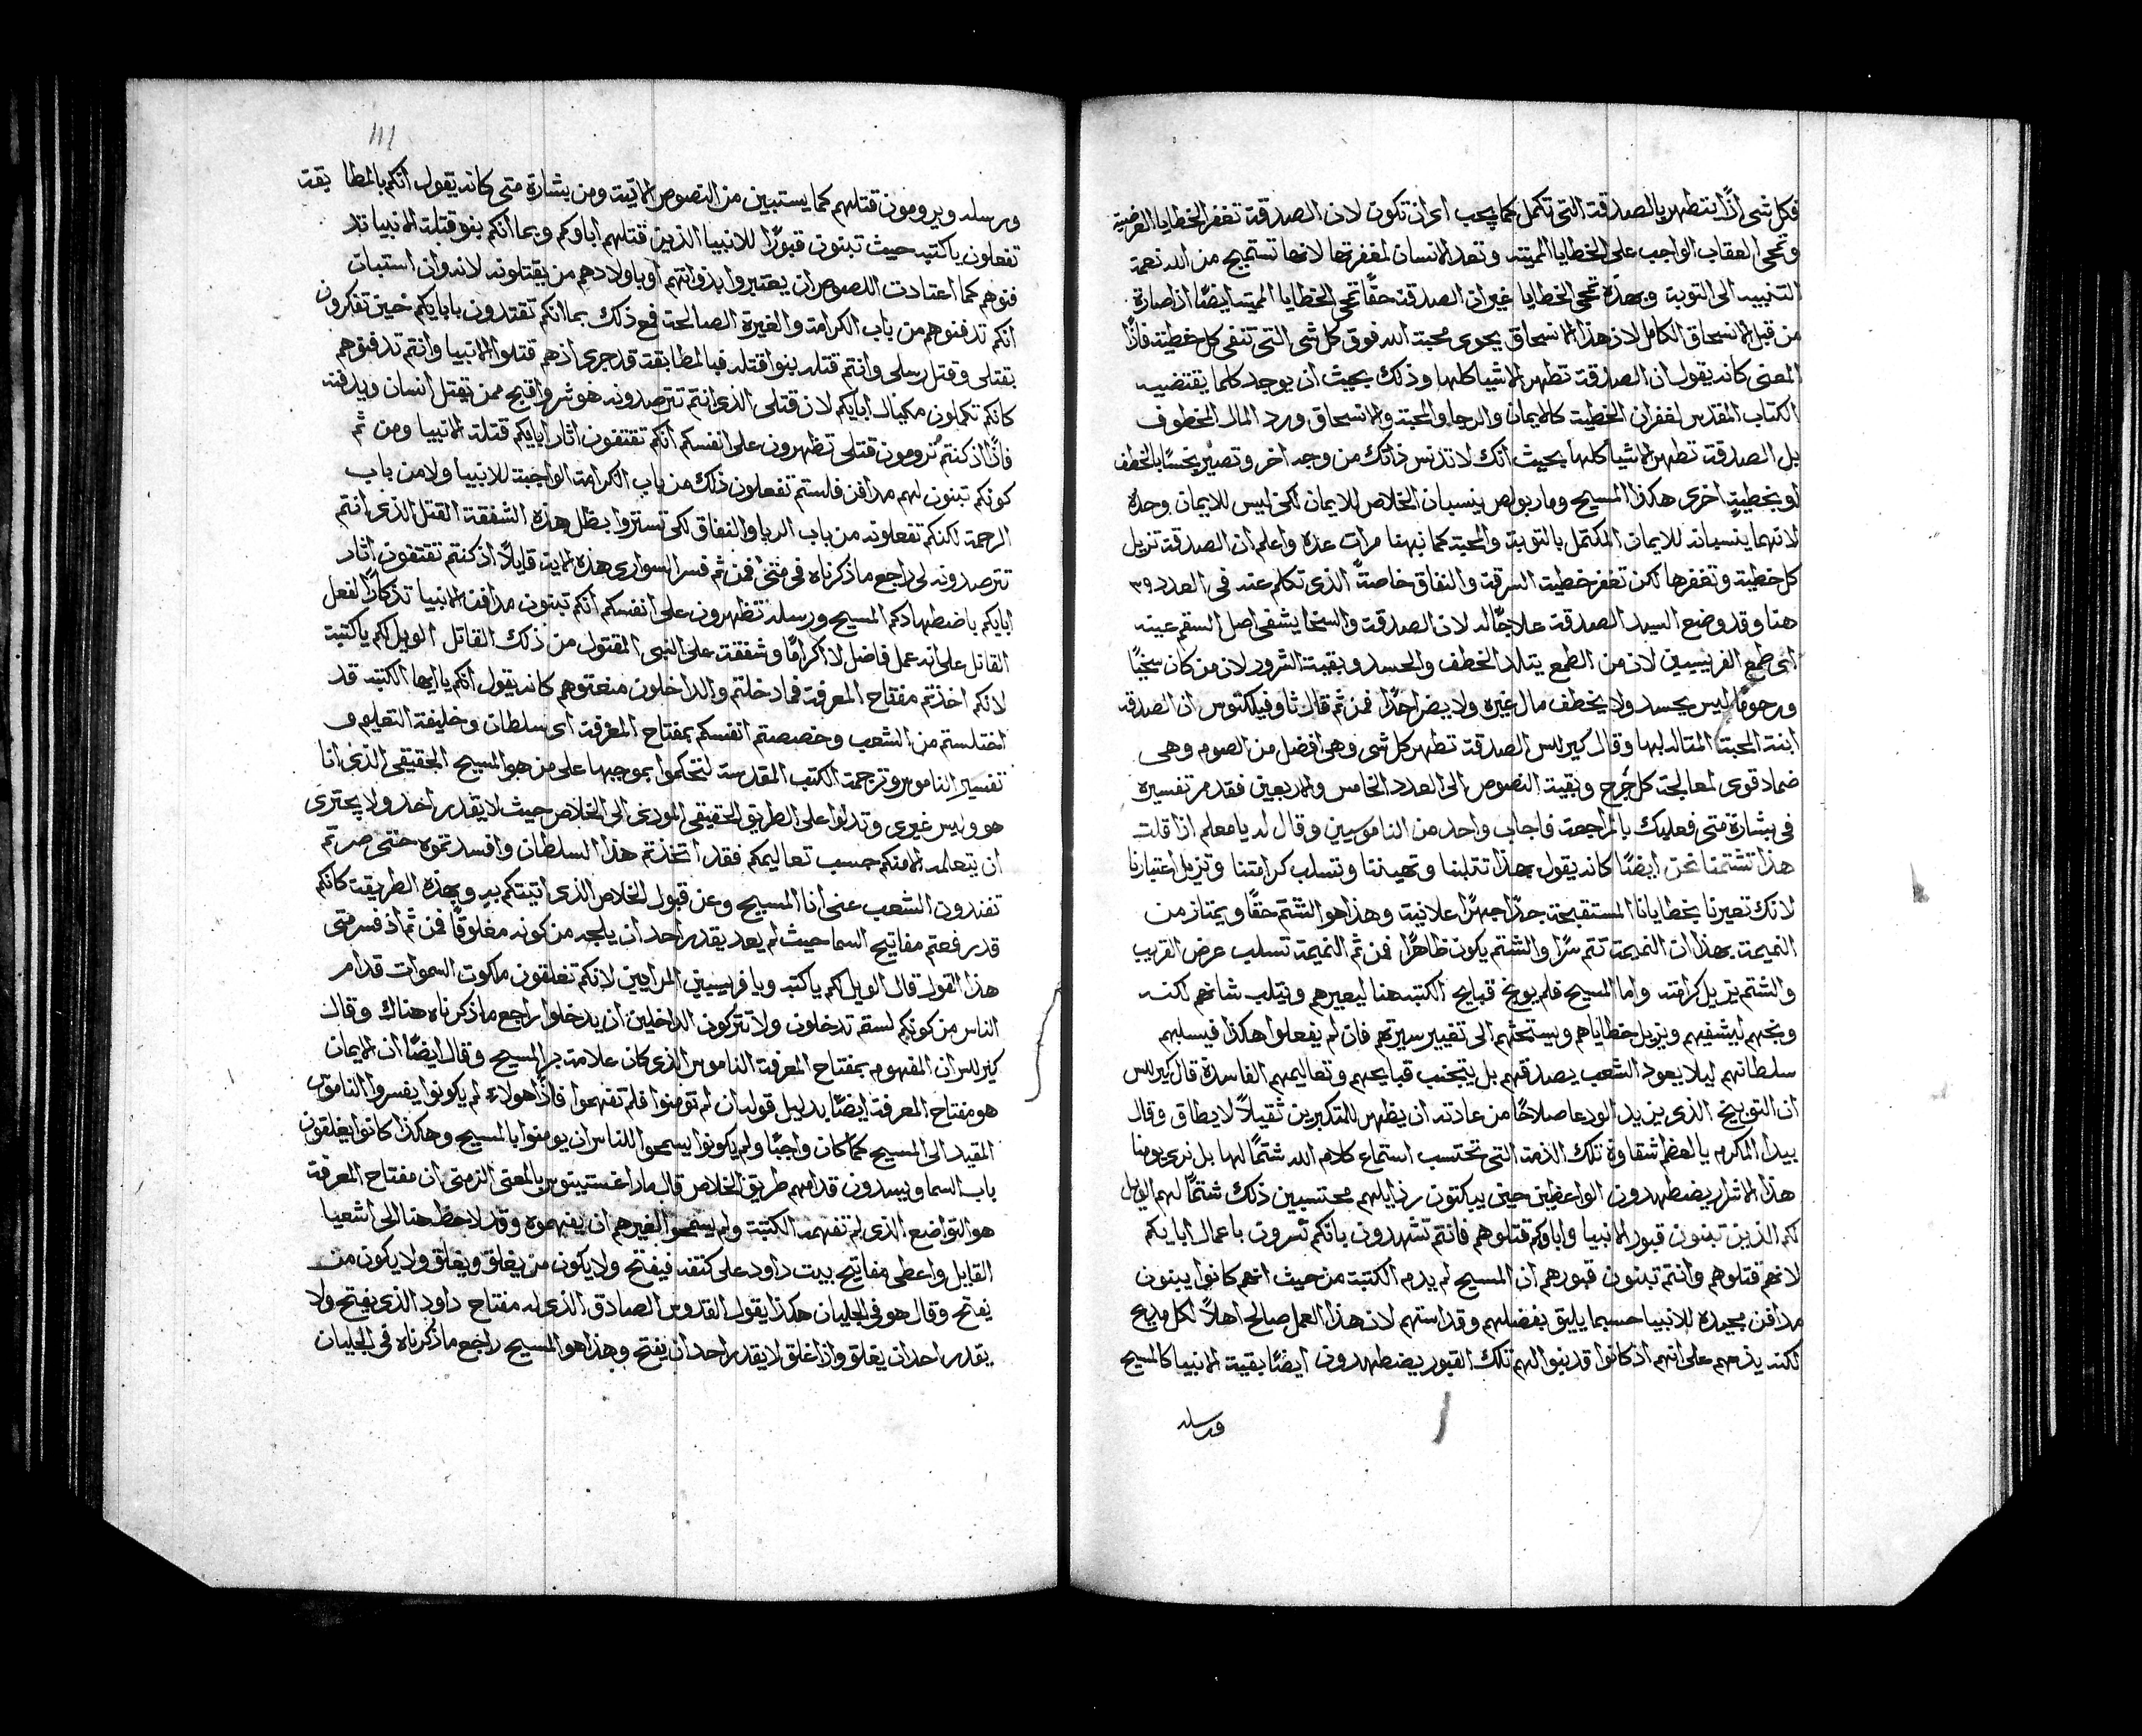 فكل شى اذًا يتطهر بالصدقة التى تكمل كما يجب اى ان تكون لان الصدقة تغفر الخطايا العرضية
وتمحى العقاب الواجب على الخطايا المميتة وتعد الانسان لمغفرتها لانها تستميح من الله نعمة
التنبيه الى التوبة وبهذه تمحى الخطايا غير ان الصدقة حقًا تمحى الخطايا المميتة ايضًا اذا صارة
من قبل الانسحاق الكامل لان هذا الانسحاق يحوى محبة الله فوق كل شى التى تنفى كل خطية فاذًا
المعنى كانه يقول ان الصدقة تطهر الاشيا كلها وذلك بحيث ان يوجد كلما يقتضيه
الكتاب المقدس لغفران الخطية كالايمان والرجا والمحبة والانسحاق ورد المال المخطوف
بل الصدقة تطهر الاشيا كلها بحيث انك لا تدنس ذاتك من وجه اخر وتصير نجسًا بالخطف
او بخطية اخرى هكذا المسيح ومار بولص ينسبان الخلاص للايمان لكن ليس للايمان وحده
لانهما ينسبانه للايمان المكتمل بالتوبة والمحبة كما نبهنا مرات عدة واعلم ان الصدقة تزيل
كل خطية وتغفرها لكن تغفر خطية السرقة والنفاق خاصتًا الذى تكلم عنه فى العدد ٣٩
هنا وقد وضع السيد الصدقة علاجًا له لان الصدقة والسخا يشفى اصل السقم عينه
اى طمع الفريسيين لان من الطمع يتلد الخطف والحسد وبقية الشرور لان من كان سخيًا
ورحومًا ليس يحسد ولا يخطف مال غيره ولا يضر احدًا فمن ثم قال ثاوفيلكتوس ان الصدقة
ابنة المحبة المتاله لها وقال كيرللس الصدقة تطهر كل شى وهى افضل من الصوم وهى
ضماد قوى لمعالجة كل جرح وبقية النصوص الى العدد الخامس والاربعين فقد مر تفسيره
فى بشارة متى فعليك بالمراجعة فاجاب واحد من الناموسيين وقال له يا معلم اذا قلت
هذا تشتمنا نحن ايضًا كانه يقول بهذا تثلبنا وتهيننا وتسلب كرامتنا وتزيل اعتبارنا
لانك تعيرنا بخطايانا المستقبحة جدًا جهرًا علانية وهذا هو الشتم حقًا ويمتاز من
النميمة بهذا ان النميمة تتم سرًا والشتم يكون ظاهرًا فمن ثم النميمة تسلب عرض القريب
والشتم يزيل كرامته واما المسيح فلم يوبخ قبايح الكتبه هنا ليعيرهم ويثلب شانهم لكنه
وبخهم ليشفيهم ويزيل خطاياهم ويستحثهم الى تغيير سيرتهم فان لم يفعلوا هكذا فيسلبهم
سلطانهم ليلا يعود الشعب يصدقهم بل يتجنب قبايحهم وتعاليمهم الفاسدة قال كيرللس
ان التوبيخ الذى يزيد الودعا صلاحًا من عادته ان يظهر للمتكبرين ثقيلاً لا يطاق وقال
بيدا المكرم يا لعظم شقاوة تلك الذمة التى تحتسب استماع كلام الله شتمًا لها بل نرى يومنا
هذا الاشرار يضطهدون الواعظين حين يبكتون رذايلهم محتسبين ذلك شتمًا لهم الويل
لكم الذين تبنون قبور الانبيا واباوكم قتلوهم فانتم تشهدون بانكم تسرون باعمال ابايكم
لانهم قتلوهم وانتم تبنون قبورهم ان المسيح لم يذم الكتبة من حيث انهم كانوا يبنون
مدافن مجيدة للانبيا حسبما يليق بفضلهم وقداستهم لان هذا العمل صالح اهلاً لكل مديح
لكنه يذمهم على انهم اذ كانوا قد بنوا لهم تلك القبور يضطهدون ايضًا بقية الانبيا كالمسيح
ورسله
١١١
ورسله ويرومون قتلهم كما يستبين من النصوص الاتية ومن بشارة متى كانه يقول انكم بالمطابقة
تفعلون يا كتبه حيث تبنون قبورًا للانبيا الذين قتلهم اباوكم وبما انكم بنو قتلة الانبيا تد
فنوهم كما اعتادت اللصوص ان يعتبروا بذواتهم او باولادهم من يقتلونه لانه وان استبان
انكم تدفنوهم من باب الكرامة والغيرة الصالحة فمع ذلك بما انكم تقتدون بابايكم حين تفكرون
بقتلى وقتل رسلى وانتم قتله بنوا قتله فبالمطابقة قد جرى اذ هم قتلوا الانبيا وانتم تدفنوهم
كانكم تكملون مكيال ابايكم لان قتلى الذى انتم تترصدونه هو شر واقبح ممن يقتل انسان ويدفنه
فاذًا اذ كنتم ترومون قتلى تظهرون على انفسكم انكم تقتفون اثار ابايكم قتلة الانبيا ومن ثم
كونكم تبنون لهم مدافن فلستم تفعلون ذلك من باب الكرامة الواجبة للانبيا ولا من باب
الرحمة لكنكم تفعلونه من باب الريا والنفاق لكى تستتروا بظل هذه الشفقة القتل الذى انتم
تترصدونه لى راجع ما ذكرناه فى متى فمن ثم فسر السوارى هذه الاية قايلاً اذ كنتم تقتفون اثار
ابايكم باضطهادكم المسيح ورسله تظهرون على انفسكم انكم تبنون مدافن الانبيا تذكارًا لفعل
القاتل على انه عمل فاضل لا اكرامًا وشفقة على النبى المقتول من ذلك القاتل الويل لكم يا كتبة
لانكم اخذتم مفتاح المعرفة فما دخلتم والداخلون منعتوهم كانه يقول انكم يا ايها الكتبة قد
اختلستم من الشعب وخصصتم انفسكم بمفتاح المعرفة اى سلطان وخليفة التعليم و
تفسير الناموس وترجمة الكتب المقدسة لتحكموا بموجبها على من هو المسيح الحقيقى الذى انا
هو وليس غيرى وتدلوا على الطريق الحقيقى المودى الى الخلاص حيث لا يقدر احد ولا يجترى
ان يتعلمه الا منكم حسب تعاليمكم فقد اتخذتم هذا السلطان وافسدتموه حتى صرتم
تفندون الشعب عنى انا المسيح وعن قبول الخلاص الذى اتيتكم به وبهذه الطريقة كانكم
قد رفعتم مفاتيح السما حيث لم يعد يقدر احد ان يلجه من كونه مغلوقًا فمن ثم اذ فسر متى
هذا القول قال الويل لكم يا كتبه ويا فريسيين المرايين لانكم تغلقون ملكوت السموات قدام
الناس من كونكم لستم تدخلون ولا تتركون الداخلين ان يدخلوا راجع ما ذكرناه هناك وقال
كيرللس ان المفهوم بمفتاح المعرفة الناموس الذى كان علامة بر المسيح وقال ايضًا ان الايمان
هو مفتاح المعرفة ايضًا بدليل قوله ان لم تومنوا فلم تفهموا فاذًا هولاء لم يكونوا يفسروا الناموس
المقيد الى المسيح كما كان واجبًا ولم يكونوا يسمحوا للناس ان يومنوا بالمسيح وهكذا كانوا يغلقون
باب السما ويسدون قدامهم طريق الخلاص قال مار اغستينوس بالمعنى الزمنى ان مفتاح المعرفة
هو التواضع الذى لم تفهمه الكتبة ولم يسمحوا لغيرهم ان يفهموه وقد لاحظ هنا الى اشعيا
القايل واعطى مفاتيح بيت داود على كتفه فيفتح ولا يكون من يغلق ويغلق ولا يكون من
يفتح وقال هو فى الجليان هكذا يقول القدوس الصادق الذى له مفتاح داود الذى يفتح ولا
يقدر احد ان يغلق واذا اغلق لا يقدر احد ان يفتح وهذا هو المسيح راجع ما ذكرناه فى الجليان